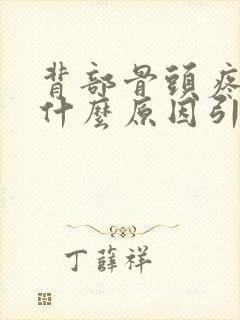 背部骨頭疼
什麼原因引
丁薛祥